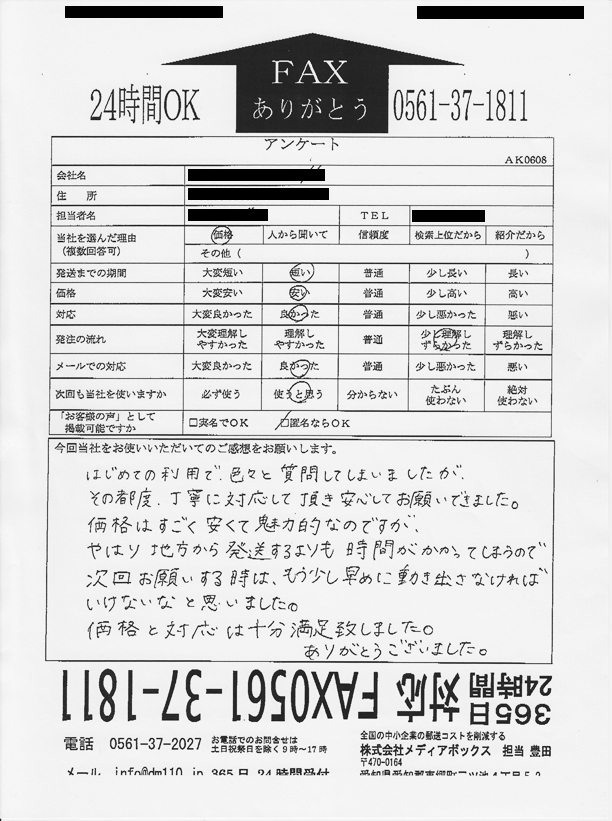 FAX
ありがとう
24時間OK
0561-37-1811
アンケート
AK0608
会社名
住　所
担当者名 TEL
当社を選んだ理由 (複数回答可) 価格 人から聞いて 信頼度 検索上位だから 紹介だから
その他 ( )
発送までの期間 大変短い 短い 普通 少し長い 長い
価格 大変安い 安い 普通 少し高い 高い
対応 大変良かった 良かった 普通 少し悪かった 悪い
発注の流れ 大変理解しやすかった 理解しやすかった 普通 少し理解しずらかった 理解しずらかった
メールでの対応 大変良かった 良かった 普通 少し悪かった 悪い
次回も当社を使いますか 必ず使う 使うと思う 分からない たぶん使わない 絶対使わない
「お客様の声」として掲載可能ですか □実名でOK □匿名ならOK
今回当社をお使いいただいてのご感想をお願いします。
はじめての利用で、色々と質問してしまいましたが、
その都度、丁寧に対応して頂き安心してお願いできました。
価格はすごく安くて魅力的なのですが、
やはり地方から発送するよりも時間がかかってしまうので
次回お願いする時は、もう少し早めに動き出さなければ
いけないなと思いました。
価格と対応は十分満足致しました。
ありがとうございました。
365日24時間対応 FAX0561-37-1811
電話 0561-37-2027 お電話でのお問合せは土日祝祭日を除く9時〜17時
全国の中小企業の郵送コストを削減する
株式会社メディアボックス 担当 豊田
〒470-0164
メール info@dm110.jp 365日 24時間受付